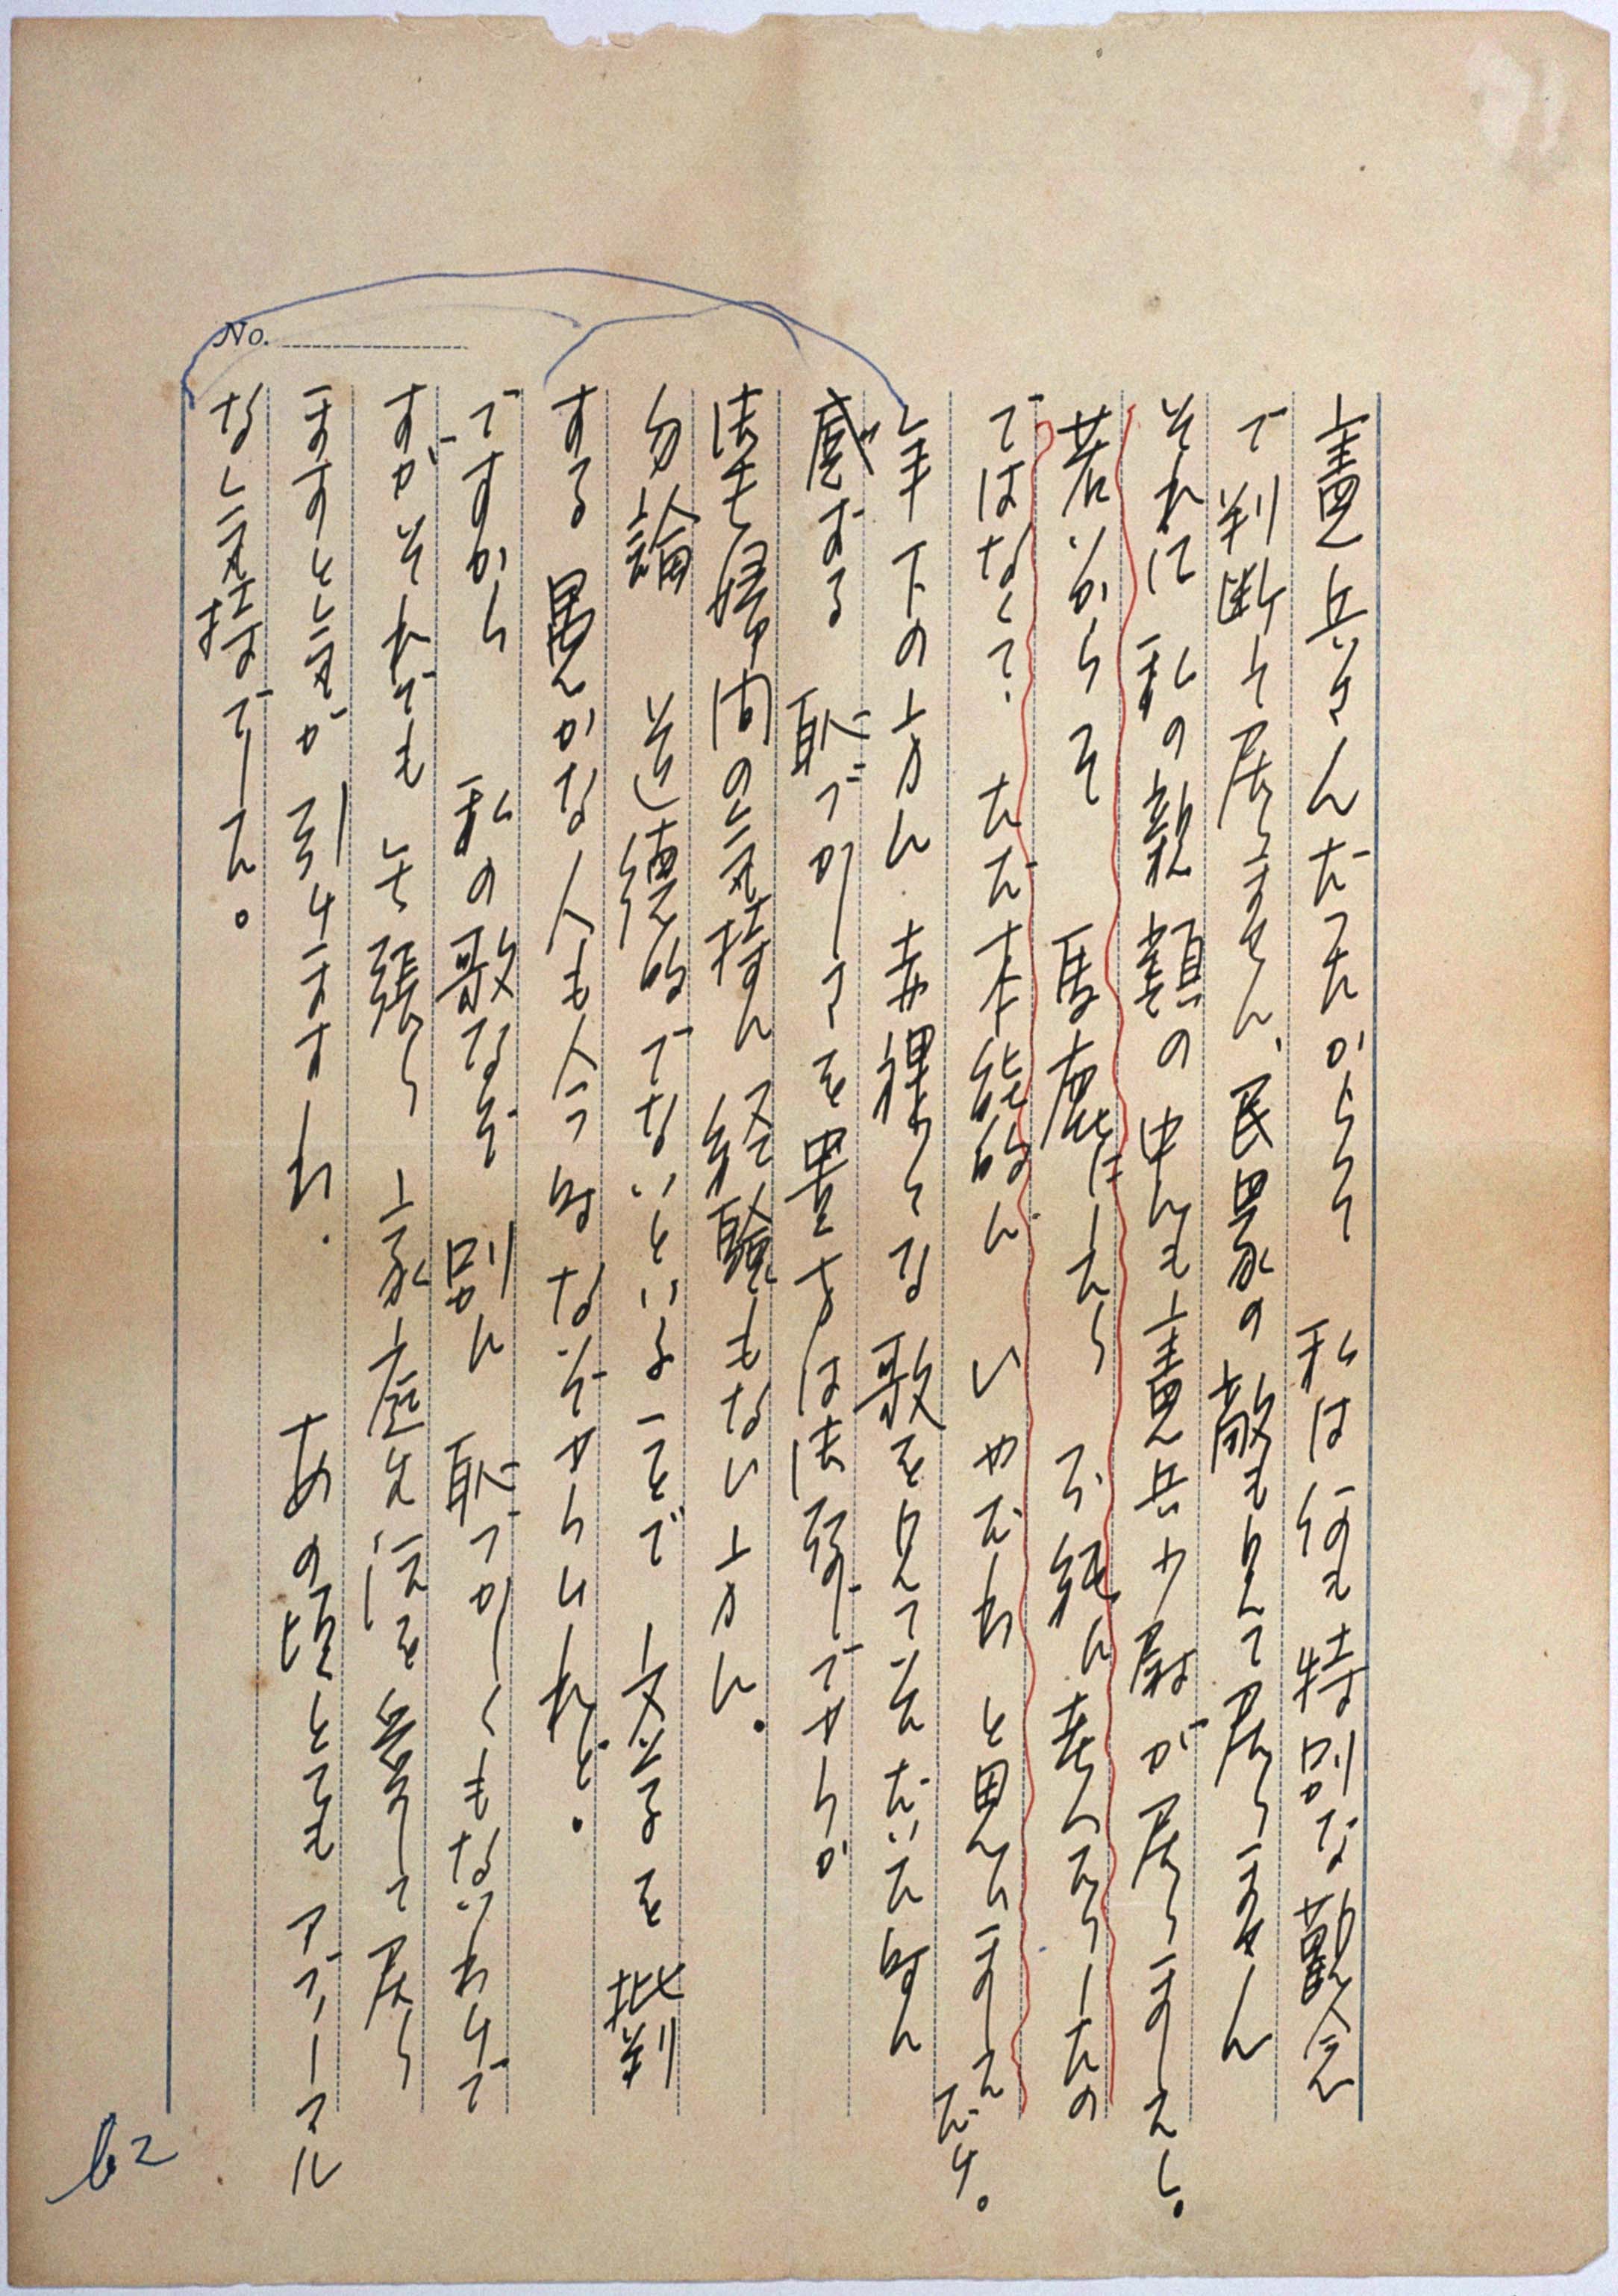 憲兵さんだつたからつて 私は何も特別な觀念
で判断して居りません、民界の敵も見えて居りません
それに私の親類の中にも憲兵少尉が居りましたし。
若いからそ 馬鹿にしたり 不純に考へたりしたの
ではなくて、ただ本能的に いやだわ と思ひましただけ。
年下の方に 赤裸々な歌を見ていただいた時に
感ずる 恥づかしさを置き方は法律でせうか
法も婦中間の気持に 経験もない方に。
勿論 道徳的でないといふことで 文学を批判
する 愚かな人も今時なぞせられれど。
ですから 私の歌なぞ 別に 恥づかしくもないわけで
すがそれでも 矢張り 家庭生活を営して居り
ますと気が引けますわ. あの頃とても アブノーマル
な気持でした。
No.
62